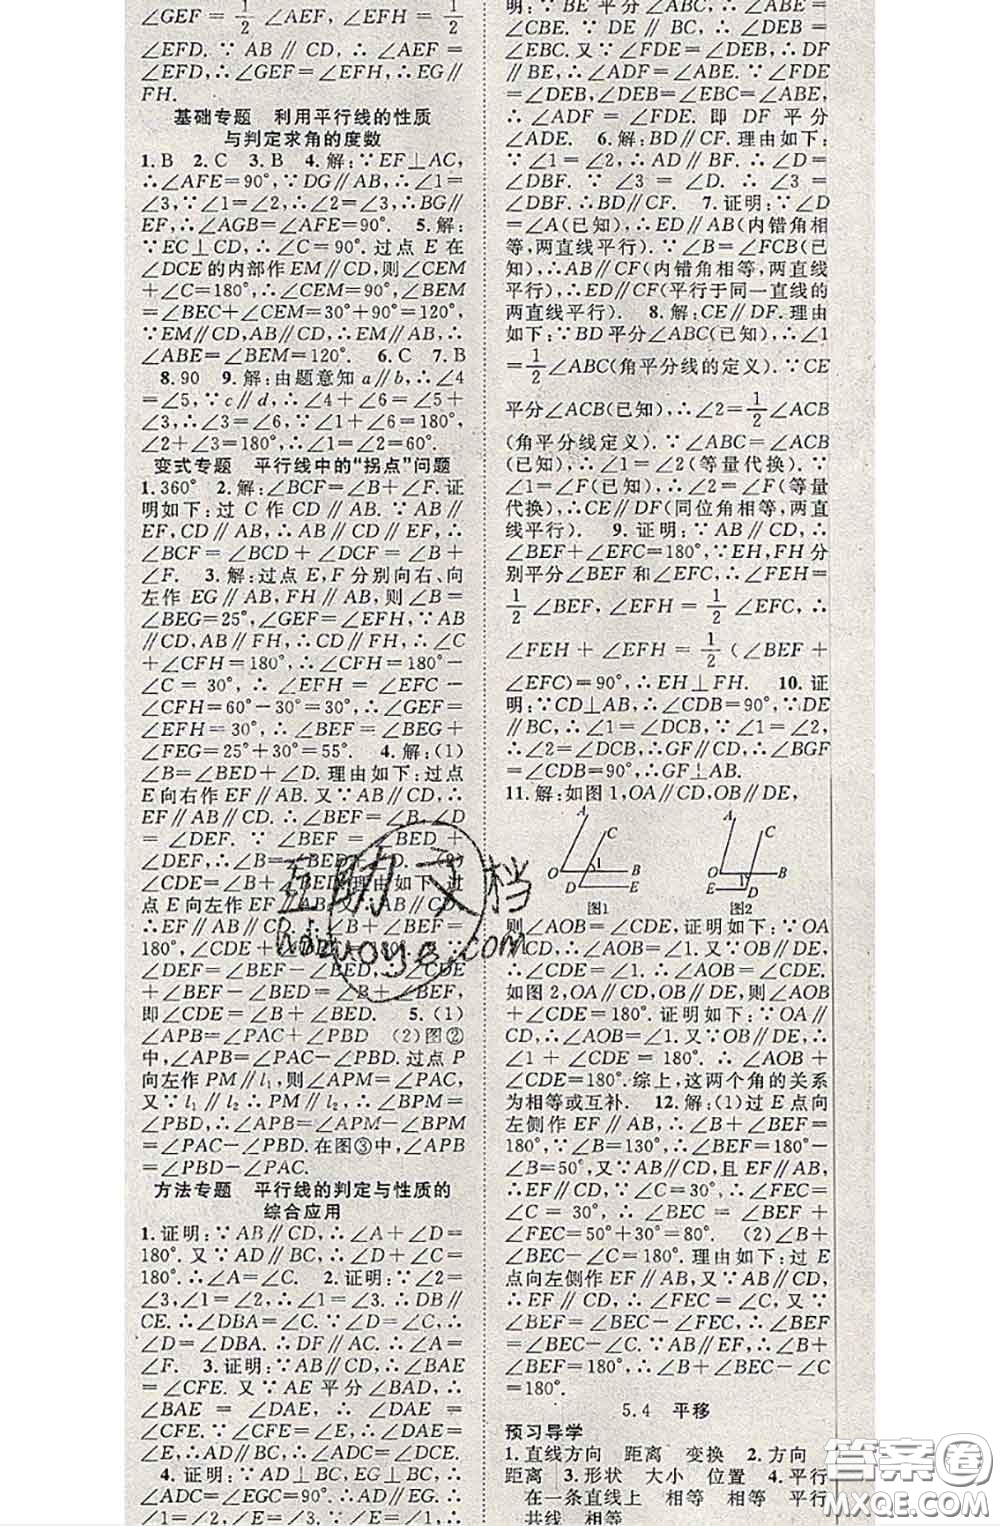 ∠GEF=1/2∠AEF,∠EFH=1/2
∠EFD.∵AB∥CD,∴∠AEF=
∠EFD,∴∠GEF=∠EFH,∴EG∥
FH.
基础专题 利用平行线的性质
与判定求角的度数
1.B 2.C 3.B 4.解:∵EF⊥AC,
∴∠AFE=90°,∵DG∥AB,∴∠1=
∠3,∵∠1=∠2,∴∠2=∠3,∴BG∥
EF,∴∠AGB=∠AFE=90°. 5.解:
∵EC⊥CD,∴∠C=90°.过点E在
∠DCE的内部作EM∥CD,则∠CEM
+∠C=180°,∴∠CEM=90°,∠BEM
=∠BEC+∠CEM=30°+90°=120°,
∵EM∥CD,AB∥CD,∴EM∥AB,∴
∠ABE=∠BEM=120°. 6.C 7.B
8.90 9.解:由题意知a∥b,∴∠4
=∠5,∵c∥d,∴∠4+∠6=∠5+
∠6,∴∠3=∠6,∵∠1+∠6=180°,
∠2+∠3=180°,∴∠1+∠2=60°.
变式专题 平行线中的“拐点”问题
1.360° 2.解:∠BCF=∠B+∠F.证
明如下:过C作CD∥AB.∵AB∥
EF,CD∥AB,∴AB∥CD∥EF,∴
∠BCF=∠BCD+∠DCF=∠B+
∠F. 3.解:过点E,F分别向右、向
左作EG∥AB,FH∥AB,则∠B=
∠BEG=25°,∠GEF=∠EFH,∵AB
∥CD,AB∥FH,∴CD∥FH,∴∠C
+∠CFH=180°,∴∠CFH=180°
-∠C=30°,∴∠EFH=∠EFC-
∠CFH=60°-30°=30°,∴∠GEF=
∠EFH=30°,∴∠BEF=∠BEG+
∠FEG=25°+30°=55°. 4.解:(1)
∠B=∠BED+∠D.理由如下:过点
E向右作EF∥AB.又∵AB∥CD,∴
EF∥AB∥CD.∴∠BEF=∠B,∠D
=∠DEF.∵∠BEF=∠BED+
∠DEF,∴∠B=∠BED+∠D.(2)
∠CDE=∠B+∠BED.理由如下:过
点E向左作EF∥AB,又∵AB∥CD,
∴EF∥AB∥CD.∴∠B+∠BEF=
180°,∠CDE+∠DEF=180°.又∵
∠DEF=∠BEF-∠BED,∴∠CDE
+∠BEF-∠BED=∠B+∠BEF,
即∠CDE=∠B+∠BED. 5.(1)
∠APB=∠PAC+∠PBD (2)图②
中,∠APB=∠PAC-∠PBD.过点P
向左作PM∥l₁,则∠APM=∠PAC,
又∵l₁∥l₂∴PM∥l₂,∴∠BPM=
∠PBD,∴∠APB=∠APM-∠BPM
=∠PAC-∠PBD.在图③中,∠APB
=∠PBD-∠PAC.
方法专题 平行线的判定与性质的
综合应用
1.证明:∵AB∥CD,∴∠A+∠D=
180°.又∵AD∥BC,∴∠D+∠C=
180°.∴∠A=∠C. 2.证明:∵∠2=
∠3,∠1=∠2,∴∠1=∠3.∴DB∥
CE.∴∠DBA=∠C.∵∠D=∠C,∴
∠D=∠DBA.∴DF∥AC.∴∠A=
∠F. 3.证明:∵AB∥CD,∴∠BAE
=∠CFE.又∵AE平分∠BAD,∴
∠BAE=∠DAE=
∠CFE.∵∠CFE=∠E,∴∠DAE=
∠E,∴AD∥BC,∴∠ADC=∠DCE.
4.证明:∵AD⊥BC,EG⊥BC,∴
∠ADC=∠EGC=90°,∴AD∥EG,∴
明:∵BE平分∠ABC,∴∠ABE=
∠CBE.∵DE∥BC,∴∠DEB=
∠EBC.又∵∠FDE=∠DEB,∴DF
∥BE,∴∠ADF=∠ABE.∵∠FDE
=∠DEB,∠DEB=∠EBC=∠ABE,
∴∠ADF=∠FDE.即DF平分
∠ADE. 6.解:BD∥CF.理由如下:
∵∠1=∠2,∴AD∥BF.∴∠D=
∠DBF.∵∠3=∠D.∴∠3=
∠DBF.∴BD∥CF. 7.证明:∵∠D
=∠A(已知),∴ED∥AB(内错角相
等,两直线平行).∵∠B=∠FCB(已
知),∴AB∥CF(内错角相等,两直线
平行),∴ED∥CF(平行于同一直线的
两直线平行). 8.解:CE∥DF.理由
如下:∵BD平分∠ABC(已知),∴∠1
=1/2∠ABC(角平分线的定义).∵CE
平分∠ACB(已知),∴∠2=1/2∠ACB
(角平分线定义).∵∠ABC=∠ACB
(已知),∴∠1=∠2(等量代换).∵
∠1=∠F(已知),∴∠2=∠F(等量
代换),∴CE∥DF(同位角相等,两直
线平行). 9.证明:∵AB∥CD,∴
∠BEF+∠EFC=180°,∵EH,FH分
别平分∠BEF和∠EFC,∴∠FEH=
1/2∠BEF,∠EFH=1/2∠EFC,∴
∠FEH+∠EFH=1/2(∠BEF+
∠EFC)=90°,∴EH⊥FH. 10.证
明:∵CD⊥AB,∴∠CDB=90°,∵DE
∥BC,∴∠1=∠DCB,∵∠1=∠2,
∴∠2=∠DCB,∴GF∥CD,∴∠BGF
=∠CDB=90°,∴GF⊥AB.
11.解:如图1,OA∥CD,OB∥DE,
A C O 1 B D E
图1
A C O B E 1 D
图2
则∠AOB=∠CDE,证明如下:∵OA
∥CD,∴∠AOB=∠1.又∵OB∥DE,
∴∠CDE=∠1.∴∠AOB=∠CDE.
如图2,OA∥CD,OB∥DE,则∠AOB+
∠CDE=180°.证明如下:∵OA∥
CD,∴∠AOB=∠1.又∵OB∥DE,∴
∠1+∠CDE=180°.∴∠AOB+
∠CDE=180°.综上,这两个角的关系
为相等或互补. 12.解:(1)过E点向
左侧作EF∥AB,∴∠B+∠BEF=
180°,∵∠B=130°,∴∠BEF=180°-
∠B=50°,又∵AB∥CD,且EF∥AB,
∴EF∥CD,∵∠C=30°,∴∠FEC=
∠C=30°,∴∠BEC=∠BEF+
∠FEC=50°+30°=80°. (2)∠B+
∠BEC-∠C=180°.理由如下:过E
点向左侧作EF∥AB,又∵AB∥CD,
∴EF∥CD,∴∠FEC=∠C,又∵
∠BEF=∠BEC-∠FEC,∴∠BEF
=∠BEC-∠C.∵AB∥EF,∴∠B+
∠BEF=180°,∴∠B+∠BEC-∠C
=180°.
5.4 平移
预习导学
1.直线方向 距离 变换 2.方向
距离 3.形状 大小 位置 4.平行
在一条直线上 相等 相等 平行
共线 相等
互助文档
hdzuoye.com
答案圈
MXQE.COM